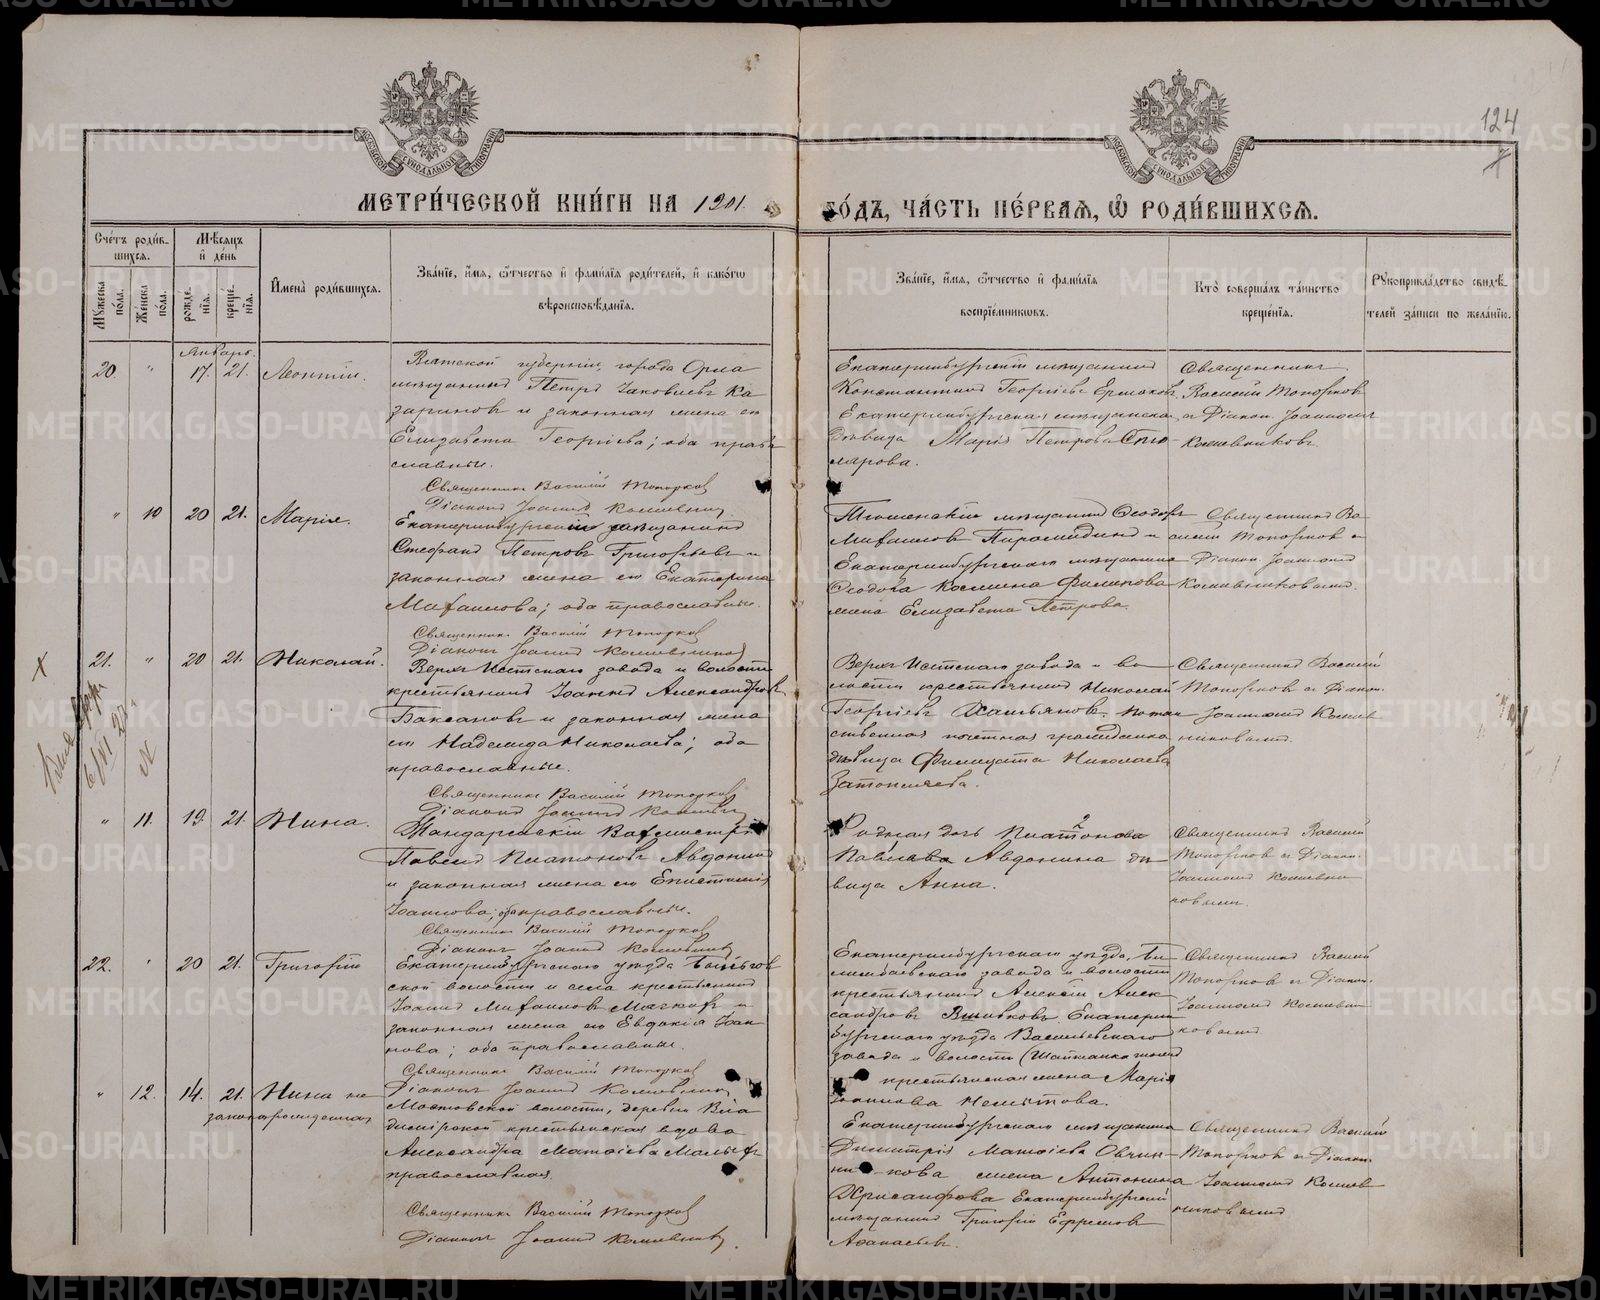 МЕТРИ́ЧЕСКОЙ КНИ́ГИ НА 1901.
ГО́ДЪ, ЧА́СТЬ ПЕ́РВАЯ, Ѡ҆ РОДИ́ВШИХСѦ.
124
Сче́тъ роди́в-
шихсѧ.
Мꙋ́жеска по́ла.
Же́нска по́ла.
Мѣ́сѧцъ и҆ де́нь
рожде́нїѧ.
креще́нїѧ.
И҆мена̀ роди́вшихсѧ.
Зва́нїе, и҆́мѧ, ѻ҆́тчество и҆ фамѝлїѧ роди́телей, и҆ како́гѡ
вѣроисповѣ́данїѧ.
Зва́нїе, и҆́мѧ, ѻ҆́тчество и҆ фамѝлїѧ
воспрїе́мникѡвъ.
Кто̀ соверша́лъ та́инство
креще́нїѧ.
Рꙋкоприкла́дство свидѣ́-
телей за́писи по жела́нїю.
Январь.
20. " 17. 21. Леонтій.
Вятской губерніи, города Орла
мѣщанинъ Петръ Іаковлевъ Ка
зариновъ и законная жена его
Елизавета Георгіева; оба право
славные.
Священникъ Василій Топорковъ
Діаконъ Іоаннъ Кошевниковъ
Екатеринбургскій мѣщанинъ
Константинъ Георгіевъ Ермаковъ,
Екатеринбургская мѣщанская
дѣвица Марія Петрова Сто
лярова.
Священникъ
Василій Топорковъ
и Діакон. Іоанномъ
Кошевниковъ.
" 10 20 21. Марія.
Екатеринбургскій мѣщанинъ
Стефанъ Петровъ Григорьевъ и
законная жена его Екатерина
Михаилова; оба православные.
Священникъ Василій Топорковъ
Діаконъ Іоаннъ Кошевниковъ
Тюменскій мѣщанинъ Ѳеодоръ
Михаиловъ Пирамидинъ и
Екатеринбургскаго мѣщанина
Ѳеодора Космина Филипова
жена Елизавета Петрова.
Священникъ Ва
силій Топорковъ и
Діакон. Іоанномъ
Кошевниковымъ.
21. " 20 21. Николай.
Верхъ Исетскаго завода и волости
крестьянинъ Іоаннъ Александровъ
Баксановъ и законная жена
его Надежда Николаева; оба
православные.
Священникъ Василій Топорковъ
Діаконъ Іоаннъ
Верхъ Исетскаго завода и во
лости крестьянинъ Николай
Георгіевъ потом
ственная почетная гражданка
дѣвица Фелицата Николаева
Священникъ Василій
Топорковъ и Діакон.
Іоанномъ Кошев
никовымъ.
" 11. 19. 21. Нина.
Жандармскій Вахмистръ
Павелъ Платоновъ Авдонинъ
и законная жена его Епистимія
Іоаннова; оба православные.
Священникъ Василій Топорковъ
Діаконъ Іоаннъ Кошевниковъ
Родная дочь Платонова
Павлова Авдонина дѣ
вица Анна.
Священникъ Василій
Топорковъ и Діакон.
Іоанномъ Кошевни
ковымъ.
22. " 20 21. Григорій
Екатеринбургскаго уѣзда
ской волости и села крестьянинъ
Іоаннъ Михаиловъ и
законная жена его Евдокія Іоан
нова; оба православные.
Священникъ Василій Топорковъ
Діаконъ Іоаннъ Кошевниковъ
Екатеринбургскаго уѣзда, Би
лимбаевскаго завода и волости
крестьянинъ Алексій Алек
сандровъ Вшивковъ, Екатерин
бургскаго уѣзда Васильевскаго
завода и волости (Шайтанка тожъ)
крестьянская жена Марія
Іоаннова
Священникъ Василій
Топорковъ и Діакон.
Іоанномъ Кошевни
ковымъ
" 12. 14. 21. Нина не
законорожденная
волости, деревни Вла
димірской крестьянская вдова
Александра Матѳіева
православная.
Священникъ Василій Топорковъ
Діаконъ Іоаннъ Кошевниковъ.
Екатеринбургскаго мѣщанина
Димитрія Матѳіева Овчин
никова жена Антонина
Хрисанфова Екатеринбургскій
мѣщанинъ Григорій Ефремовъ
Аѳанасьевъ.
Священникъ Василій
Топорковъ и Діакон.
Іоанномъ Кошев
никовымъ
METRIKI.GASO-URAL.RU